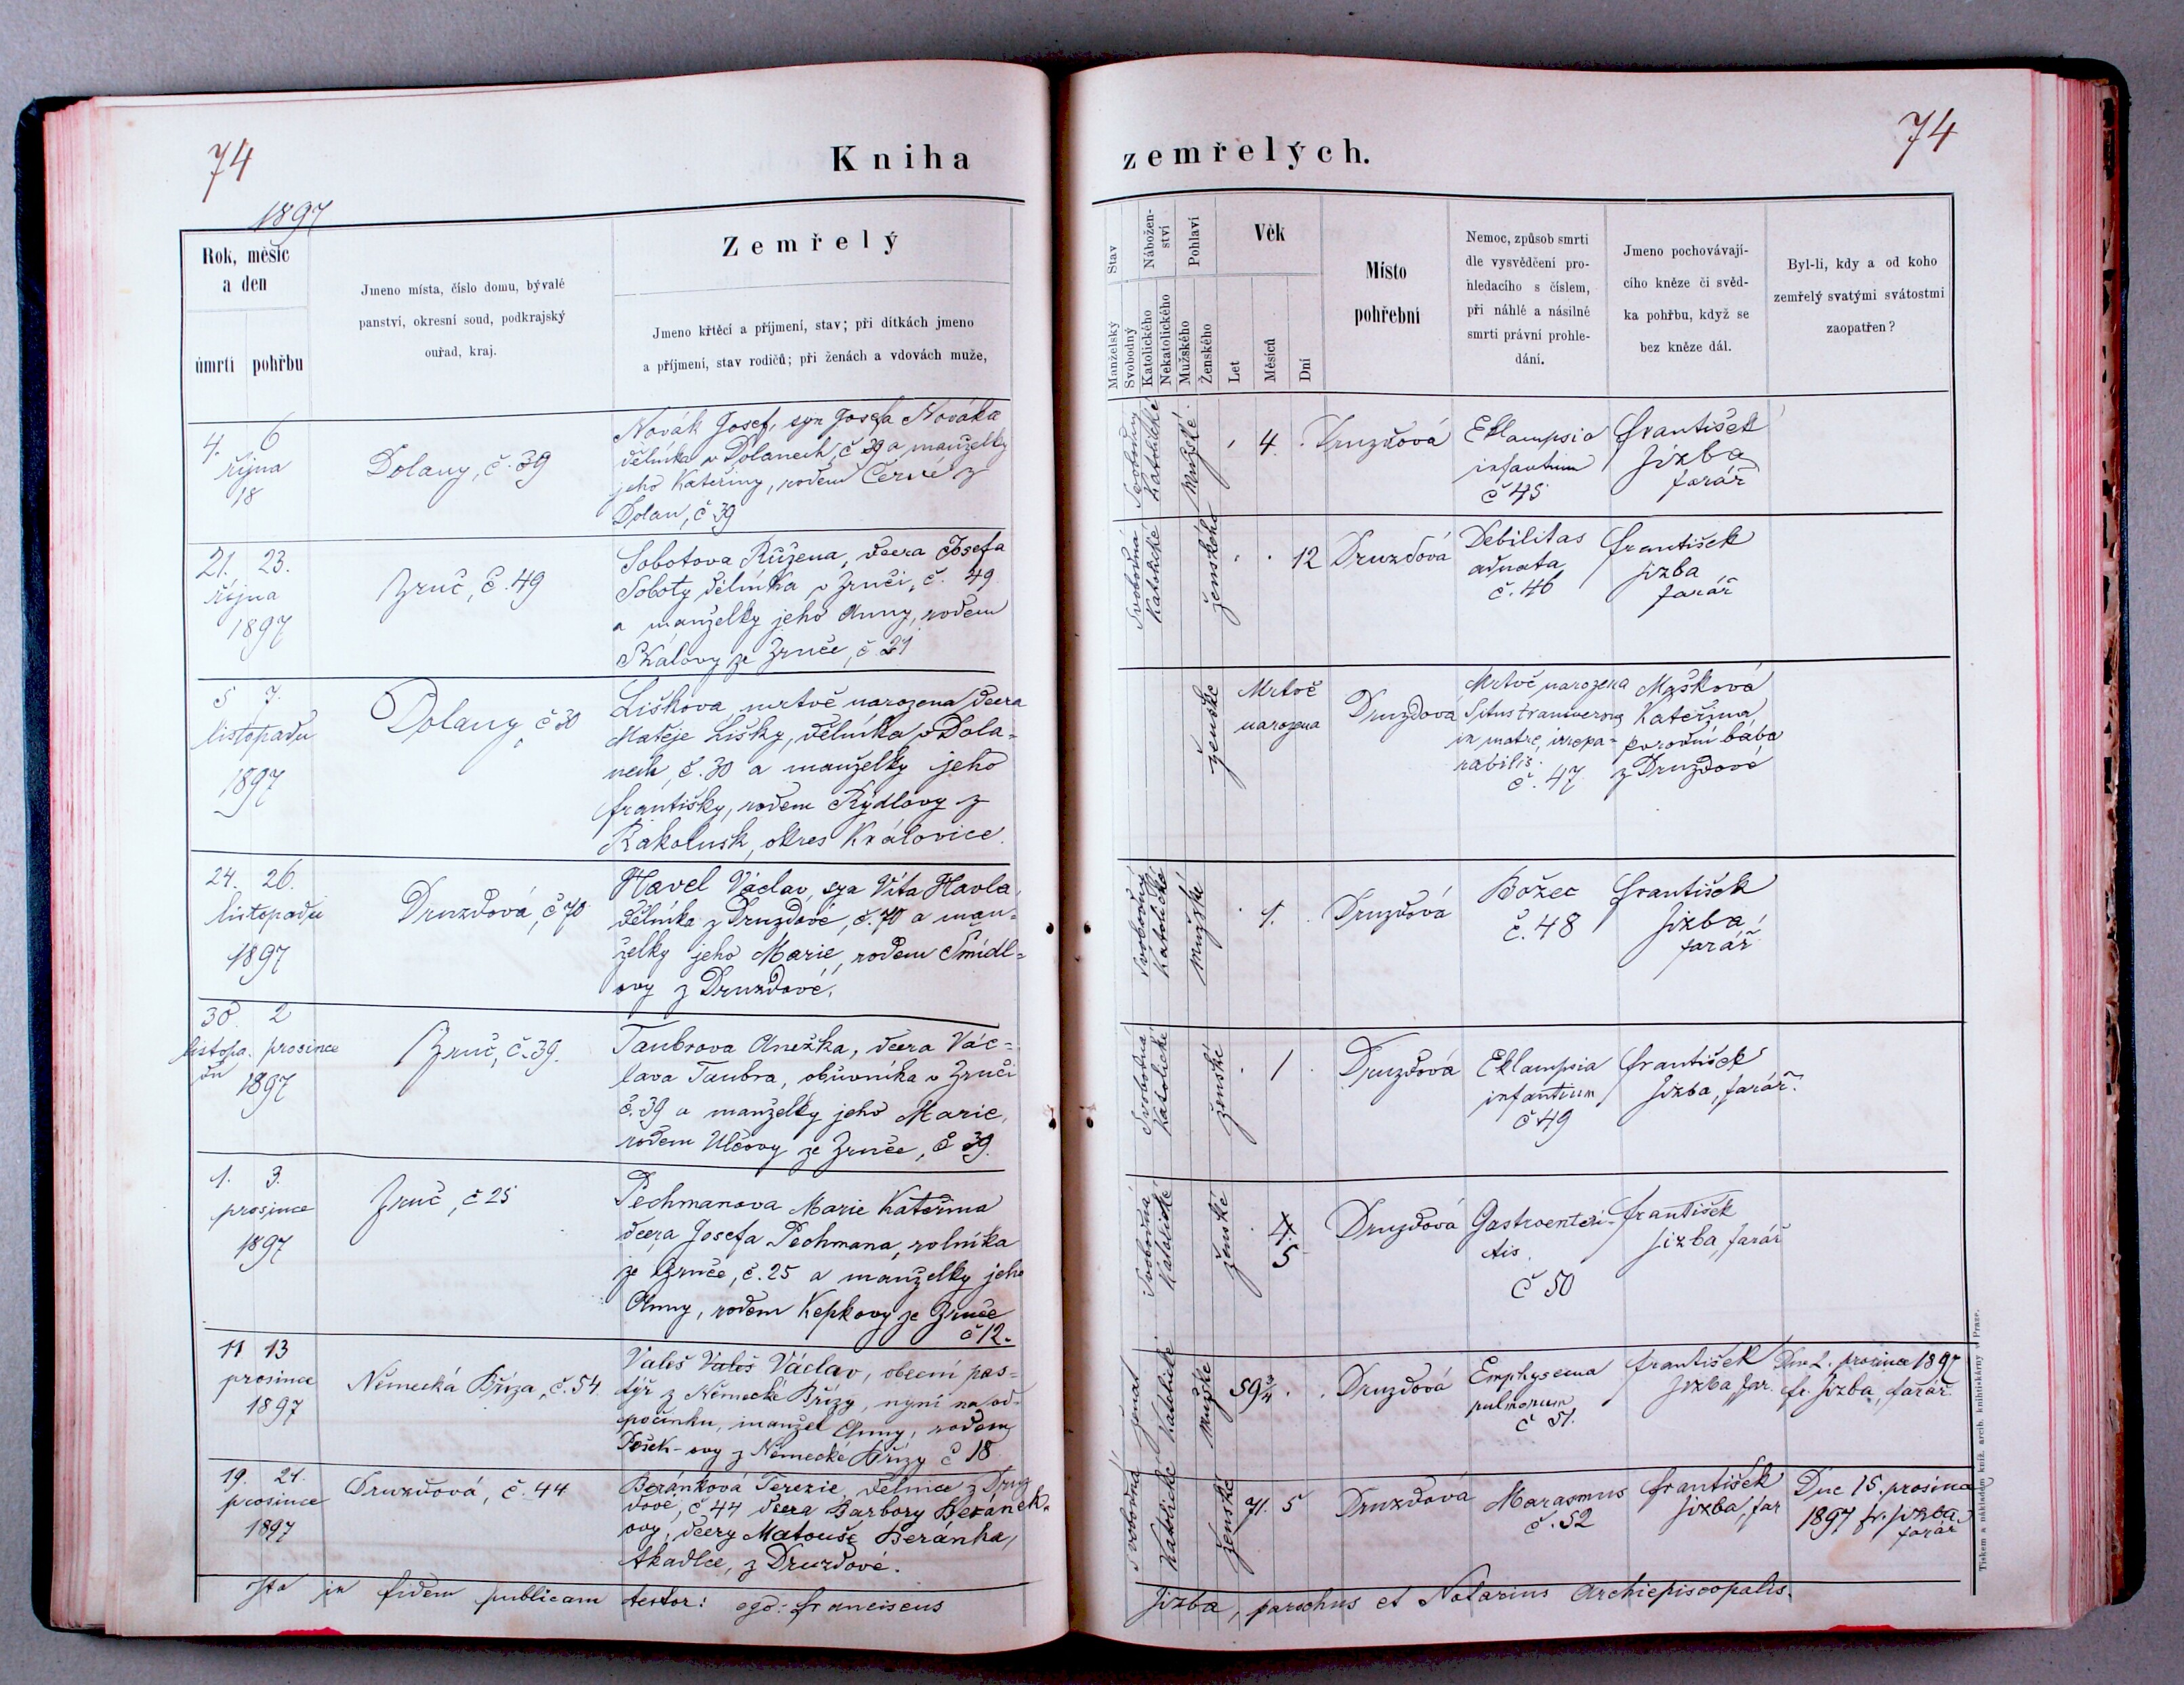 74
74
Kniha zemřelých.
1897
Rok, měsíc
a den
úmrtí pohřbu
Jmeno místa, číslo domu, bývalé
panství, okresní soud, podkrajský
ouřad, kraj.
Zemřelý
Jmeno křtěcí a příjmení, stav; při dítkách jmeno
a příjmení, stav rodičů; při ženách a vdovách muže,
Stav
Manželský
Svobodný
Nábožen-
ství
Katolického
Nekatolického
Pohlaví
Mužského
Ženského
Věk
Let
Měsíců
Dní
Místo
pohřební
Nemoc, způsob smrti
dle vysvědčení pro-
hledacího s číslem,
při náhlé a násilné
smrti právní prohle-
dání.
Jmeno pochovávají-
cího kněze či svěd-
ka pohřbu, když se
bez kněze dál.
Byl-li, kdy a od koho
zemřelý svatými svátostmi
zaopatřen?
4. 6
října
18
Dolany, č. 39
Novák Josef, syn Josefa Nováka
dělníka v Dolanech, č 39 a manželky
jeho Kateřiny, rodem Černé z
Dolan, č 39
Svobodný
Katolické
Mužské
4
Druzdová
Eklampsia
infantium
č 45
František
Jizba
farář
21. 23.
října
1897
Zruč, č. 49
Sobotova Růžena, dcera Josefa
Soboty dělníka v Zruči, č. 49
a manželky jeho Anny, rodem
Skálovy ze Zruče, č. 21
Svobodná
Katolické
ženského
12
Druzdová
Debilitas
adnata
č. 46
František
Jizba
farář
5 7.
listopadu
1897
Dolany č 30
Liškova, mrtvě narozena dcera
Matěje Lišky, dělníka v Dola-
nech, č. 30 a manželky jeho
Františky, rodem Rýdlovy z
Rakolusk, okres Královice.
ženské
Mrtvě
narozena
Druzdová
Mrtvě narozena
Situs transversus
in matre, irrepa-
rabilis.
č. 47.
Mašková
Kateřina
porodní bába
z Druzdové
24. 26.
listopadu
1897
Druzdová, č 70
Havel Václav, syn Víta Havla,
dělníka z Druzdové, č. 70 a man-
želky jeho Marie, rodem Šmídl-
ovy z Druzdové.
Svobodný
Katolické
Mužské
1.
Druzdová
Božec
č. 48
František
Jizba,
farář
30. 2
listopa. prosince
du
1897
Zruč, č. 39.
Taubrova Anežka, dcera Vác-
lava Taubra, obuvníka v Zruči
č. 39 a manželky jeho Marie,
rodem Ulčovy ze Zruče, č 39.
Svobodná
Katolické
ženské
1
Druzdová
Eklampsia
infantium
č 49
František
Jizba, farář.
1. 3.
prosince
1897
Zruč, č 25
Pechmanova Marie Kateřina
dcera Josefa Pechmana, rolníka
ze Zruče, č. 25 a manželky jeho
Anny, rodem Kepkovy ze Zruče
č 12.
Svobodná
Katolické
ženské
4
5
Druzdová
Gastroenteri-
tis.
č 50
František
Jizba, farář
11 13
prosince
1897
Německá Bříza, č. 54.
Valeš Valeš Václav, obecní pas-
týř z Německé Břízy, nyní na od-
počinku, manžel Anny, rodem
z Německé Břízy č 18
ženat
Katolické
Mužské
59 3/4
Druzdová
Emphysema
pulmonum
č 51.
František
Jizba, far.
Dne 2. prosince 1897
fr. Jizba, farář.
19. 21.
prosince
1897
Druzdová, č. 44
Beránková Terezie, dělnice z Druz
dové, č 44 dcera Barbory Beránek-
ovy, dcery Matouše Beránka,
tkadlce, z Druzdové.
Svobodná
Katolické
ženské
71. 5
Druzdová
Marasmus
č. 52
František
Jizba, far
Dne 15. prosince
1897 fr. Jizba
farář
Ita in fidem publicam testor: ego: Franciscus
Jizba, parochus et Notarius Archiepiscopalis.
Tiskem a nákladem kníž. arcib. knihtiskárny v Praze.